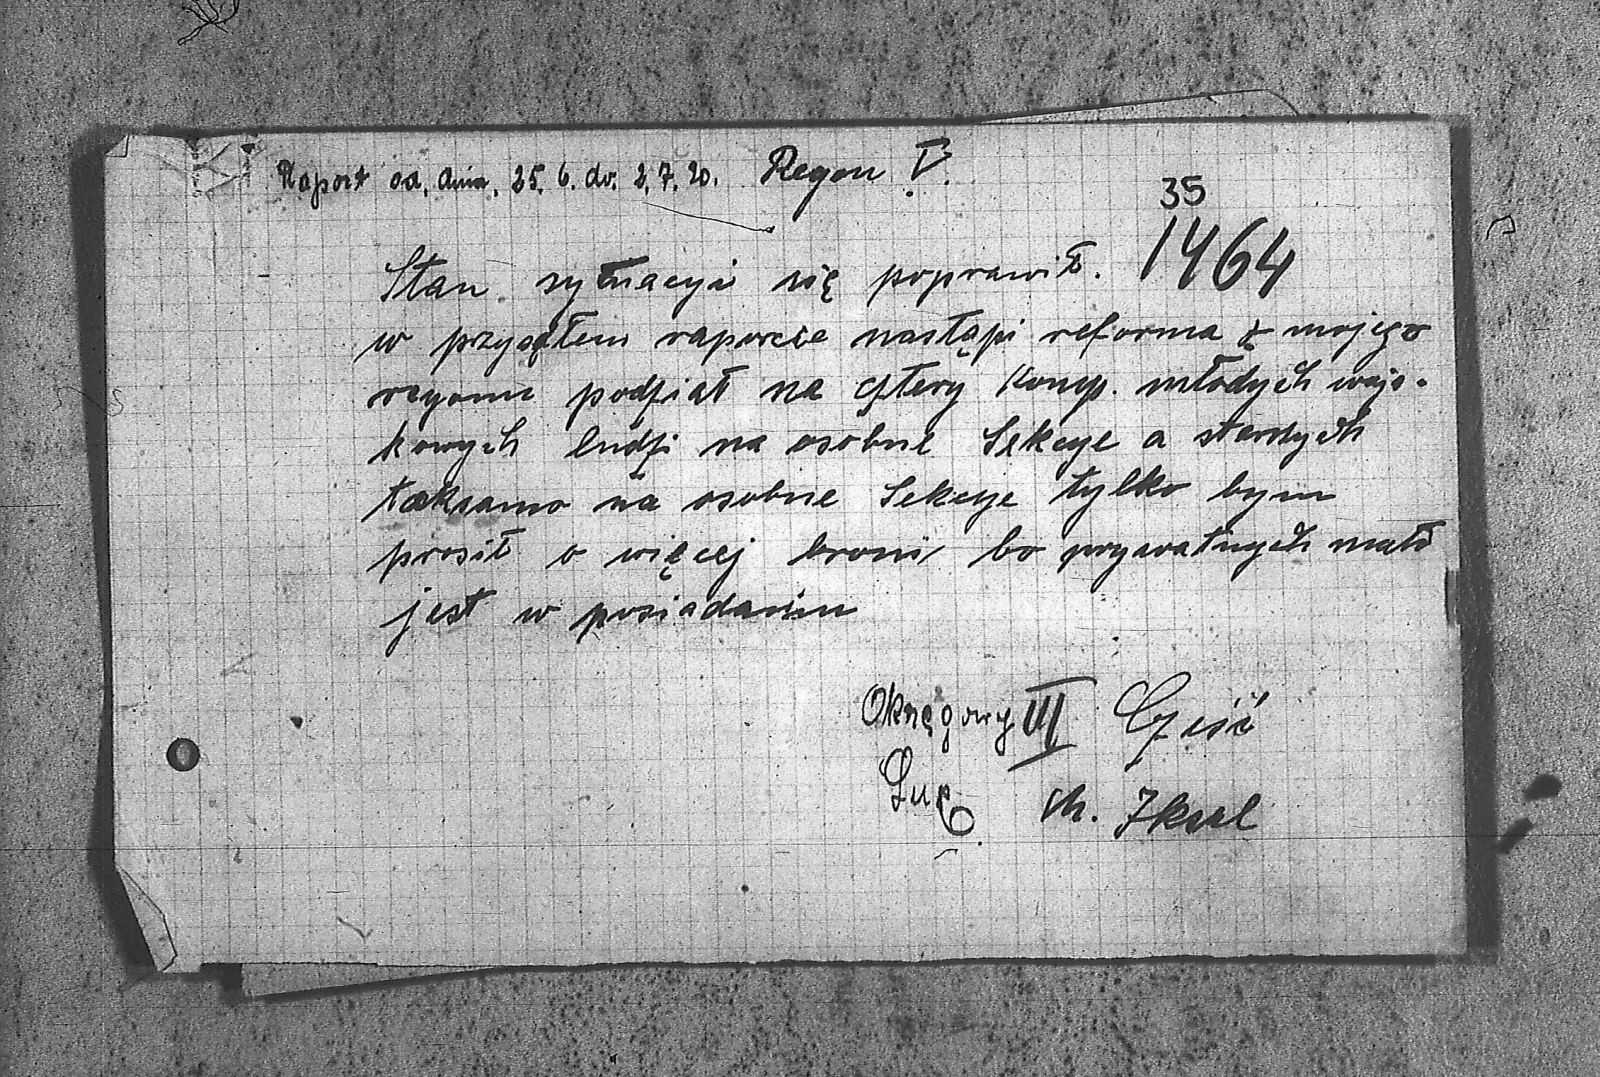 Raport od, dnia, 25. 6. do. 2. 7. 20. Regon V.
35
1464
Stan sytuacyi się poprawił.
w przysąłem raporcie nastąpi reforma z mojego
regonu podział na cztery Komp. młodych wojs-
kowych ludzi na osobne Sekcye a starszych
taksamo na osobne Sekcye tylko bym
prosił o więcej broni bo prywatnych mało
jest w posiadaniu
Okręgowy III Cześć
m. Iksal